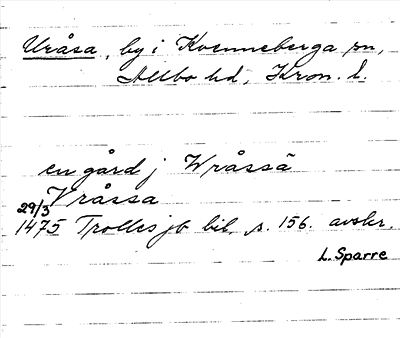 Uråsa, by i Kvenneberga sn,
Allbo hd, Kron. l.
en gård j Wråssä
Vråssa
29/3
1475 Trolles jb bil. s. 156. avskr.
L. Sparre